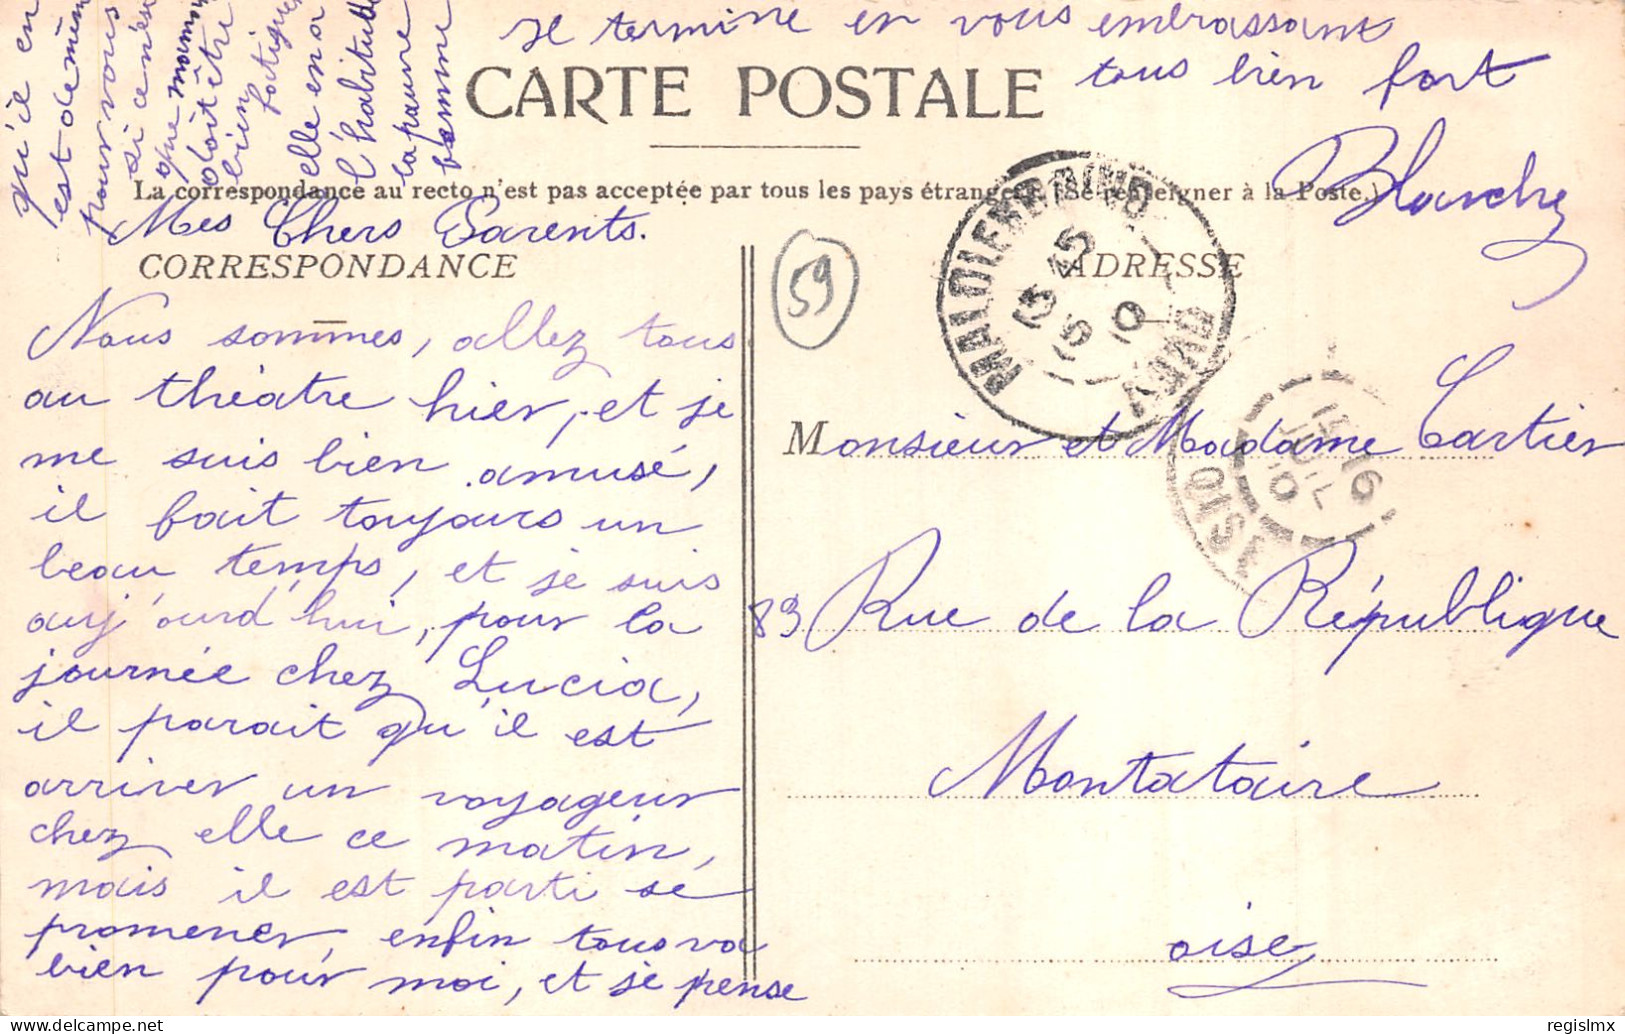 CARTE POSTALE
La correspondance au recto n'est pas acceptée par tous les pays étrangers. (Se renseigner à la Poste.)
CORRESPONDANCE
ADRESSE
Mes Chers Parents.
Nous sommes, allez tous
au théatre hier, et je
me suis bien amusé,
il fait toujours un
beau temps, et je suis
auj'ourd'hui, pour la
journée chez Lucia,
il parait qu'il est
arriver un voyageur
chez elle ce matin,
mais il est parti se
promener, enfin tous va
bien pour moi, et je pense
qu'il en
est de même
pour vous
si ce n'est
que maman
doit être
bien
fatiguée
elle en a
l'habitude
la pauvre
femme
Je termine en vous embrassant
tous bien fort
Blanche
59
Monsieur et Madame Cartier
89 Rue de la République
Montataire
oise
MALO LES BAINS
NORD
15 16
JUIL
10
OISE
regislmx
delcampe.net